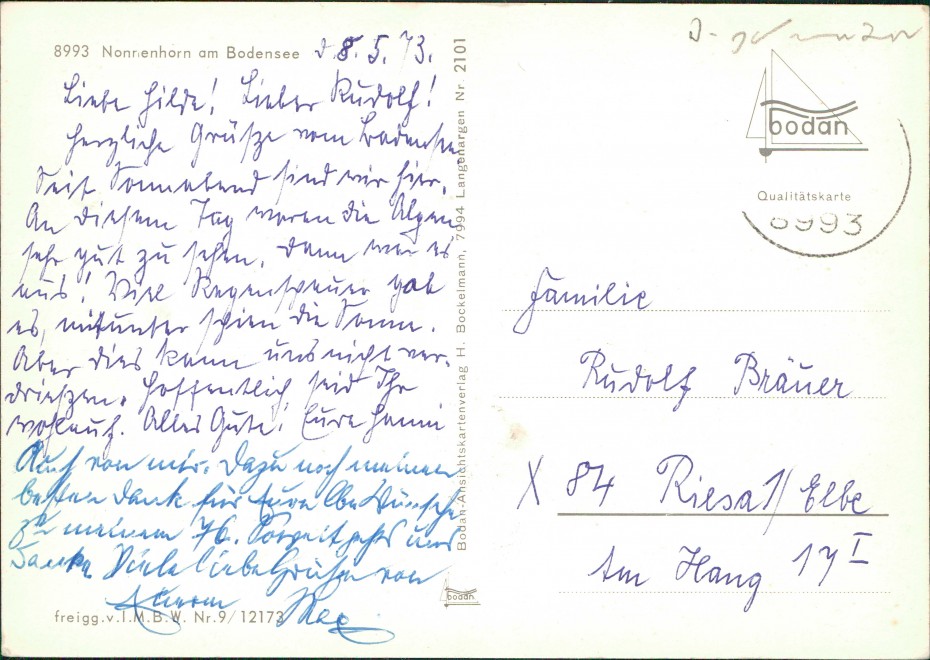 8993 Nonnenhorn am Bodensee
d 8.5.73.
Liebe Hilde! Lieber Rudolf!
Herzliche Grüße vom Bodensee
Seit Sonnabend sind wir hier.
An diesem Tag waren die Alpen
sehr gut zu sehen. Dann war es
aus! Viel Regenschauer gab
es, mitunter schien die Sonne.
Aber dies kann uns nicht ver-
drießen. Hoffentlich seid Ihr
wohlauf. Alles Gute! Eure Hanni
Auch von mir. Dazu noch meinen
besten Dank für Eure lb. Wünsche
zu meinem 76. uns
Danke Viele liebe Grüße von
Eurem Max
freigg.v.I.M.B.W. Nr.9/12173
Bodan-Ansichtskartenverlag H. Bockelmann, 7994 Langenargen Nr. 2101
bodan
bodan
Qualitätskarte
8993
Familie
Rudolf Bräuer
X 84 Riesa 1/Elbe
Am Hang 17 I